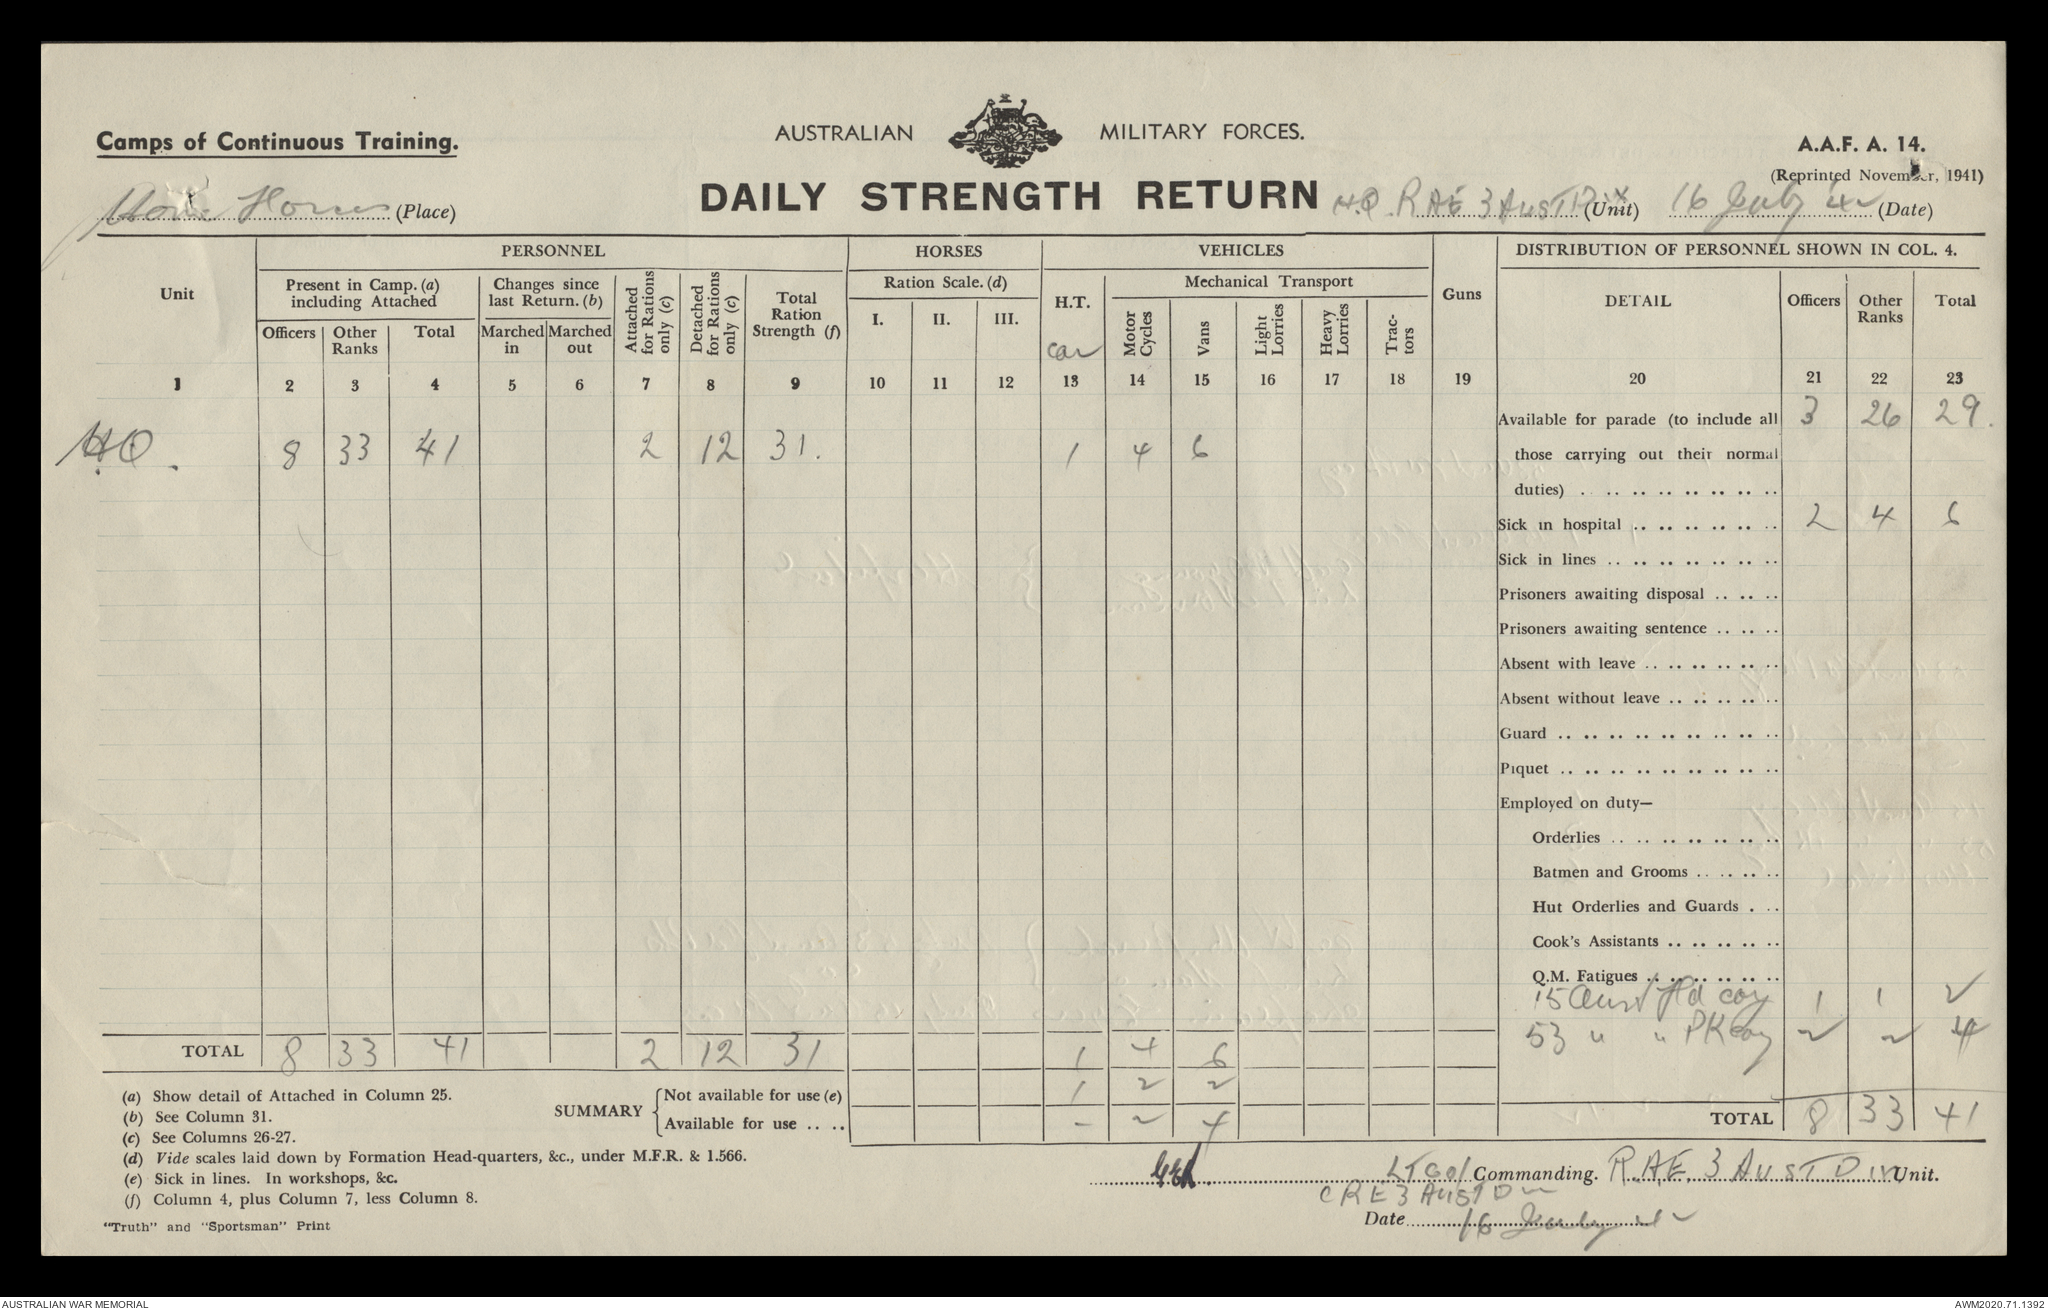 Camps of Continuous Training.
AUSTRALIAN MILITARY FORCES.
A.A.F. A. 14.
(Reprinted November, 1941)
Horses (Place)
DAILY STRENGTH RETURN
H.Q. RAE 3 AUST DIV (Unit)
16 July 42 (Date)
PERSONNEL HORSES VEHICLES DISTRIBUTION OF PERSONNEL SHOWN IN COL. 4.
Unit
Present in Camp. (a) including Attached
Changes since last Return. (b)
Attached for Rations only (c)
Detached for Rations only (c)
Total Ration Strength (f)
Ration Scale. (d)
H.T.
car
Mechanical Transport
Guns
DETAIL Officers Other Ranks Total
Officers Other Ranks Total Marched in Marched out
I. II. III.
Motor Cycles Vans Light Lorries Heavy Lorries Trac-tors
1 2 3 4 5 6 7 8 9 10 11 12 13 14 15 16 17 18 19 20 21 22 23
HQ. 8 33 41 2 12 31. 1 4 6
Available for parade (to include all 3 26 29.
those carrying out their normal
duties) . .. .. .. .. .. .. ..
Sick in hospital .. .. .. .. .. .. 2 4 6
Sick in lines .. .. .. .. .. .. ..
Prisoners awaiting disposal .. .. ..
Prisoners awaiting sentence .. .. ..
Absent with leave .. .. .. .. .. ..
Absent without leave .. .. .. .. ..
Guard .. .. .. .. .. .. .. .. ..
Piquet .. .. .. .. .. .. .. .. ..
Employed on duty—
Orderlies .. .. .. .. .. .. ..
Batmen and Grooms .. .. .. ..
Hut Orderlies and Guards . ..
Cook's Assistants .. .. .. .. ..
Q.M. Fatigues .. .. .. .. .. ..
15 Aust Fd coy 1 1 2
53 " " PK coy 2 2 4
TOTAL 8 33 41 2 12 31 1 4 6
SUMMARY
Not available for use (e) 1 2 2
Available for use .. .. - 2 4
TOTAL 8 33 41
(a) Show detail of Attached in Column 25.
(b) See Column 31.
(c) See Columns 26-27.
(d) Vide scales laid down by Formation Head-quarters, &c., under M.F.R. & 1.566.
(e) Sick in lines. In workshops, &c.
(f) Column 4, plus Column 7, less Column 8.
"Truth" and "Sportsman" Print
LT Col Commanding. R.A.E. 3 AUST DIV Unit.
CRE 3 AUST Div
Date 16 July 42
AUSTRALIAN WAR MEMORIAL
AWM2020.71.1392